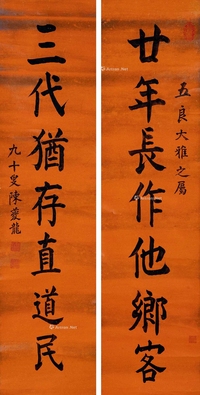 廿年長作他鄉客
五良大雅之屬
三代猶存直道民
九十叟陳夔龍